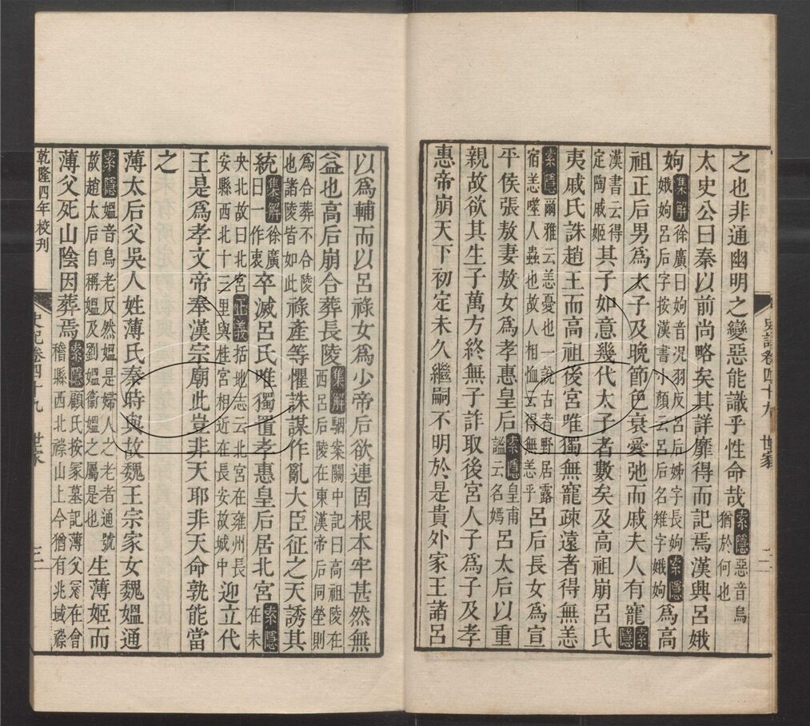 之也非通幽明之變惡能識乎性命哉索隱惡音烏猶於何也
太史公曰秦以前尚略矣其詳靡得而記焉漢興呂娥
姁集解徐廣曰姁音况羽反呂后姊字長姁索隱娥姁呂后字按漢書顏云呂后名雉字娥姁爲高
祖正后男爲太子及晚節色衰愛弛而戚夫人有寵索隱
漢書云得定陶戚姬其子如意幾代太子者數矣及高祖崩呂氏
夷戚氏誅趙王而高祖後宮唯獨無寵疎遠者得無恙
索隱爾雅云恙憂也一說古者野居露宿恙噬人蟲也故人相恤云得無恙乎呂后長女爲宣
平侯張敖妻敖女爲孝惠皇后索隱皇甫謐云名嫣呂太后以重
親故欲其生子萬方終無子詐取後宮人子爲子及孝
惠帝崩天下初定未久繼嗣不明於是貴外家王諸呂
史記卷四十九 世家 二
以爲輔而以呂祿女爲少帝后欲連固根本牢甚然無
益也高后崩合葬長陵集解駰案關中記曰高祖陵在西呂后陵在東漢帝后同塋則
爲合葬不合陵也諸陵皆如此祿產等懼誅謀作亂大臣征之天誘其
統集解徐廣曰一作衷卒滅呂氏唯獨置孝惠皇后居北宮索隱在未
央北故曰北宮正義括地志云北宮在雍州長安縣西北十三里與桂宮相近在長安故城中迎立代
王是爲孝文帝奉漢宗廟此豈非天耶非天命孰能當
之
薄太后父吳人姓薄氏秦時與故魏王宗家女魏媼通
索隱媼音烏老反然媼是婦人之老者通號故趙太后自稱媼及劉媼衞媼之屬是也生薄姬而
薄父死山陰因葬焉索隱顧氏按冢墓記薄父冢在會稽縣西北襟山上今猶有兆域襟
乾隆四年校刊 史記卷四十九 世家 三